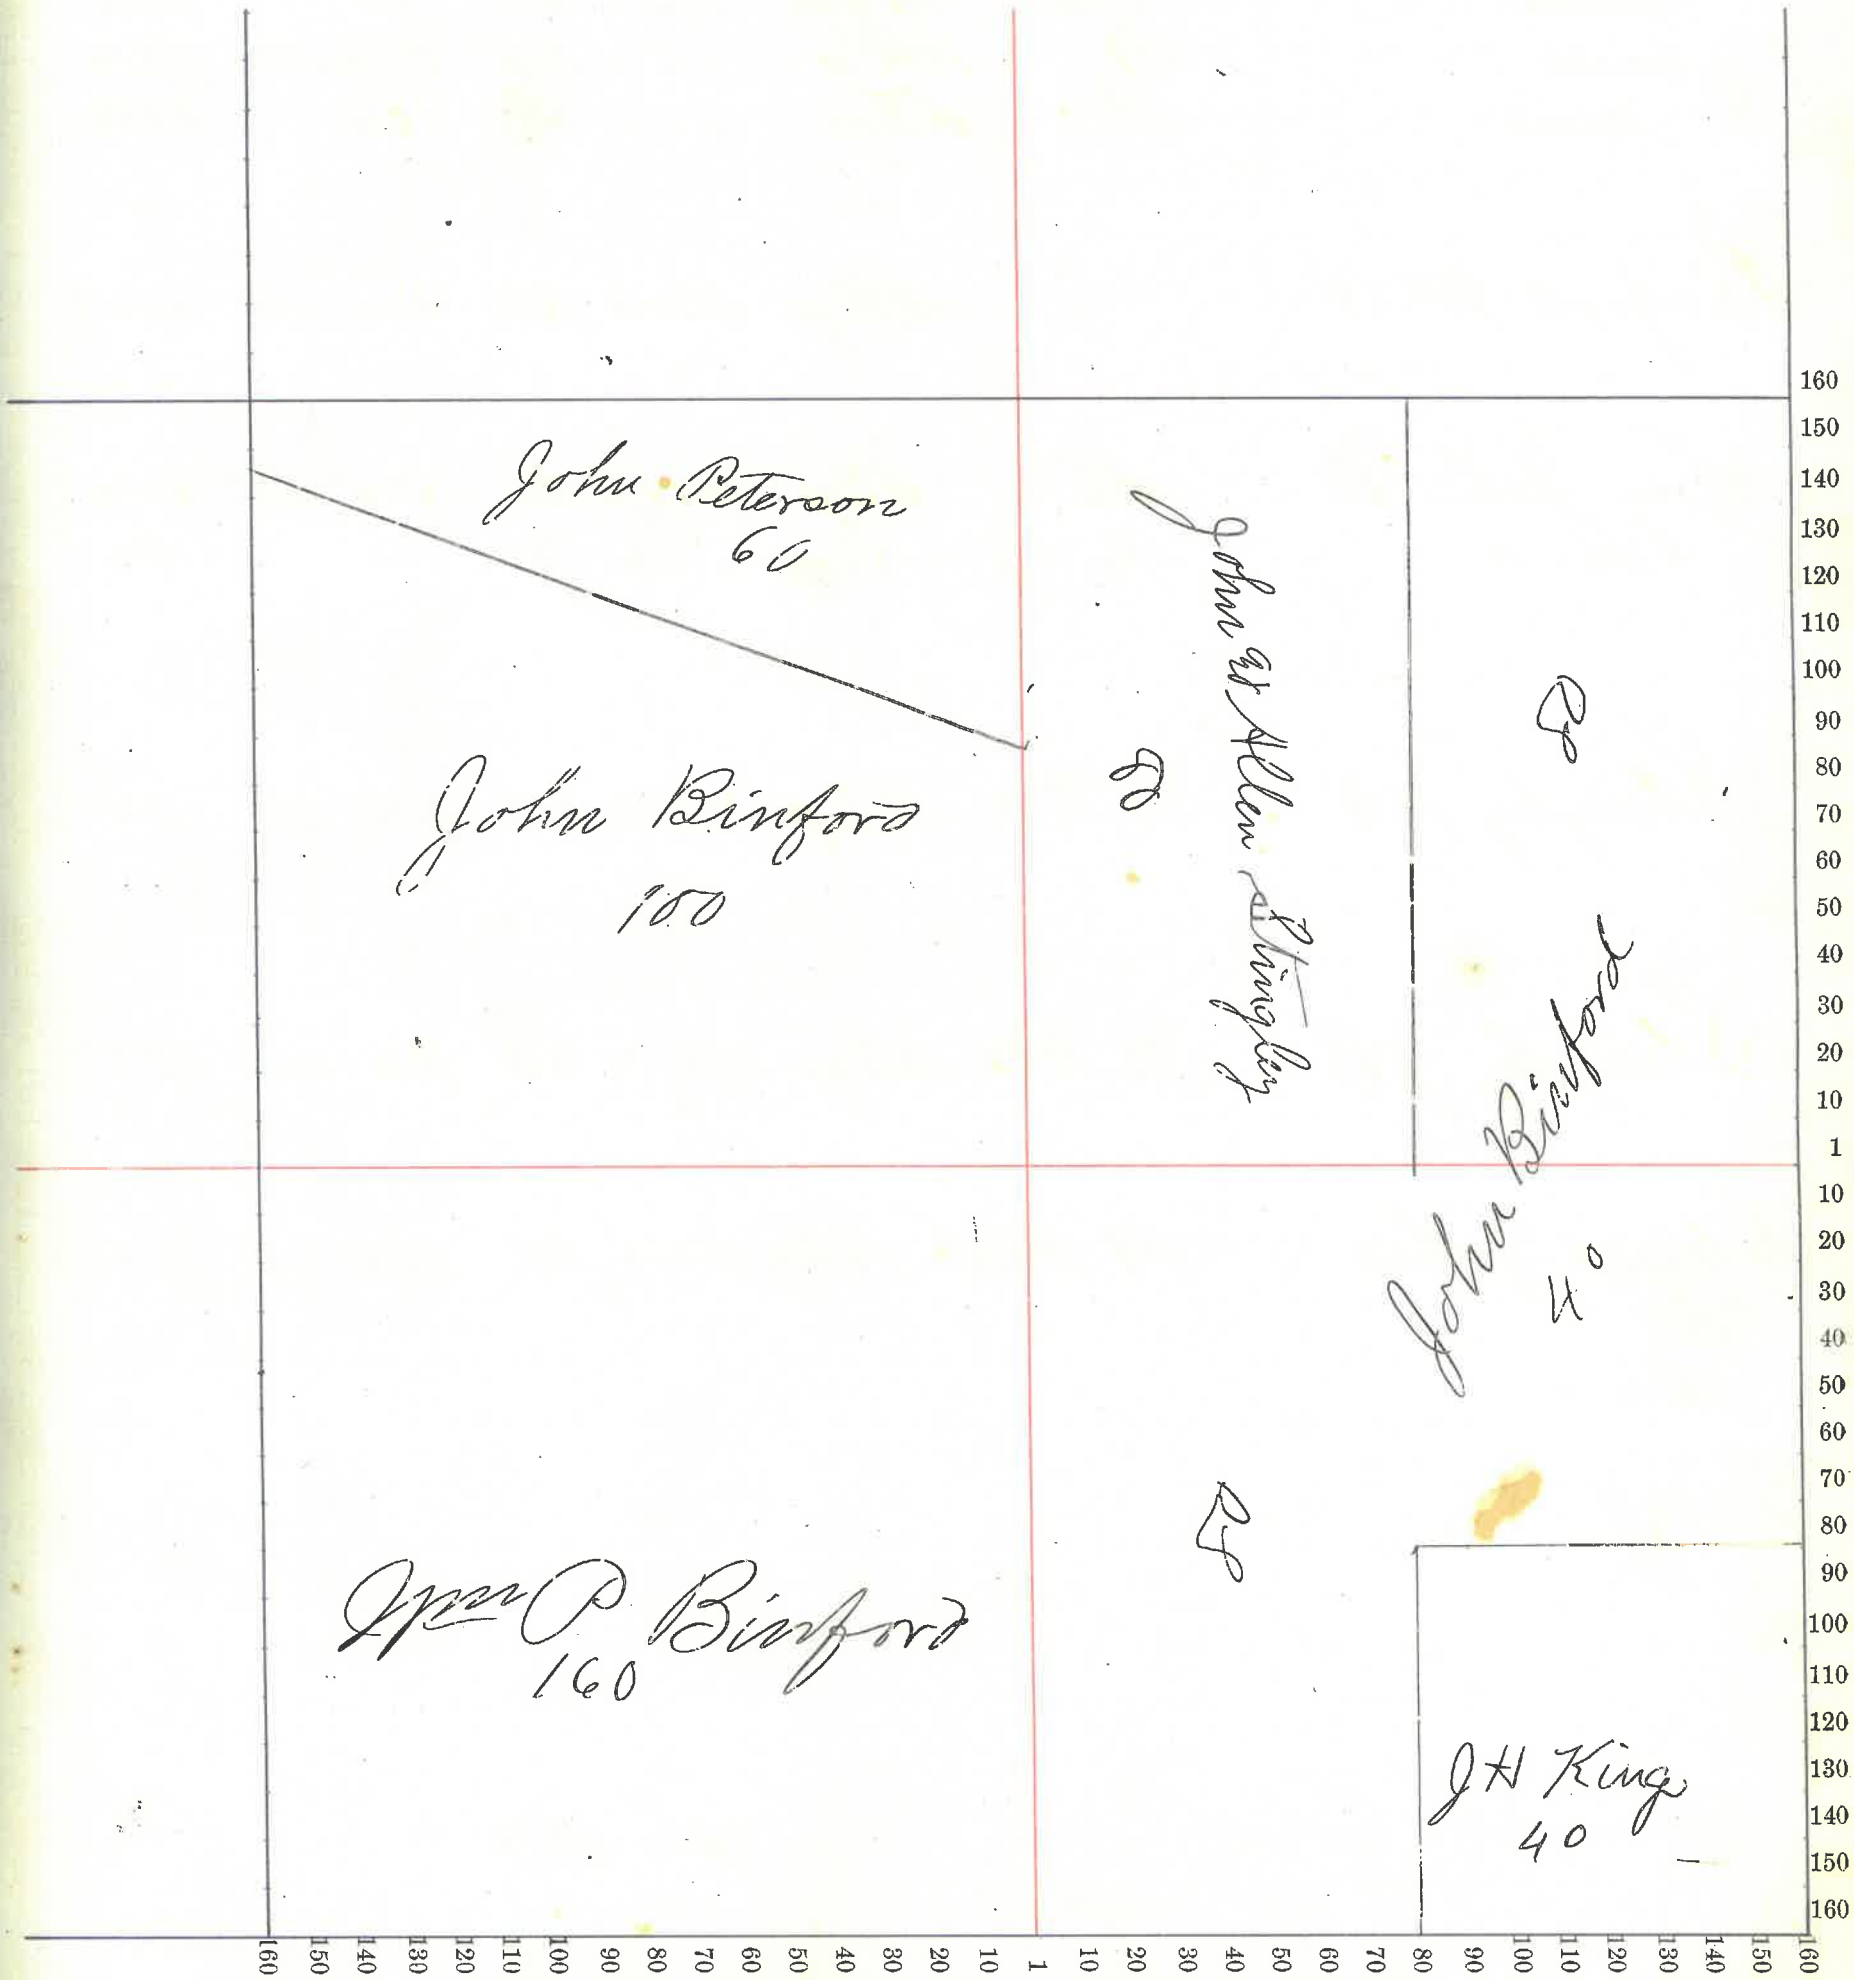 John Peterson
60
John Binford
100
John W Allen Stingley
80
80
John Binford
40
80
Wm P. Binford
160
J H King
40
160
150
140
130
120
110
100
90
80
70
60
50
40
30
20
10
1
10
20
30
40
50
60
70
80
90
100
110
120
130
140
150
160
160
150
140
130
120
110
100
90
80
70
60
50
40
30
20
10
1
10
20
30
40
50
60
70
80
90
100
110
120
130
140
150
160